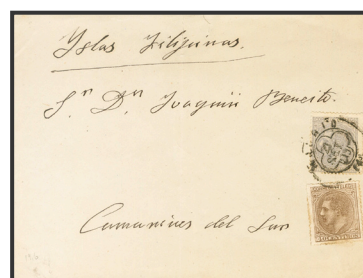 Yslas Filipinas.
Sr. Dn. Joaquin Beneito.
Camarines del Sur